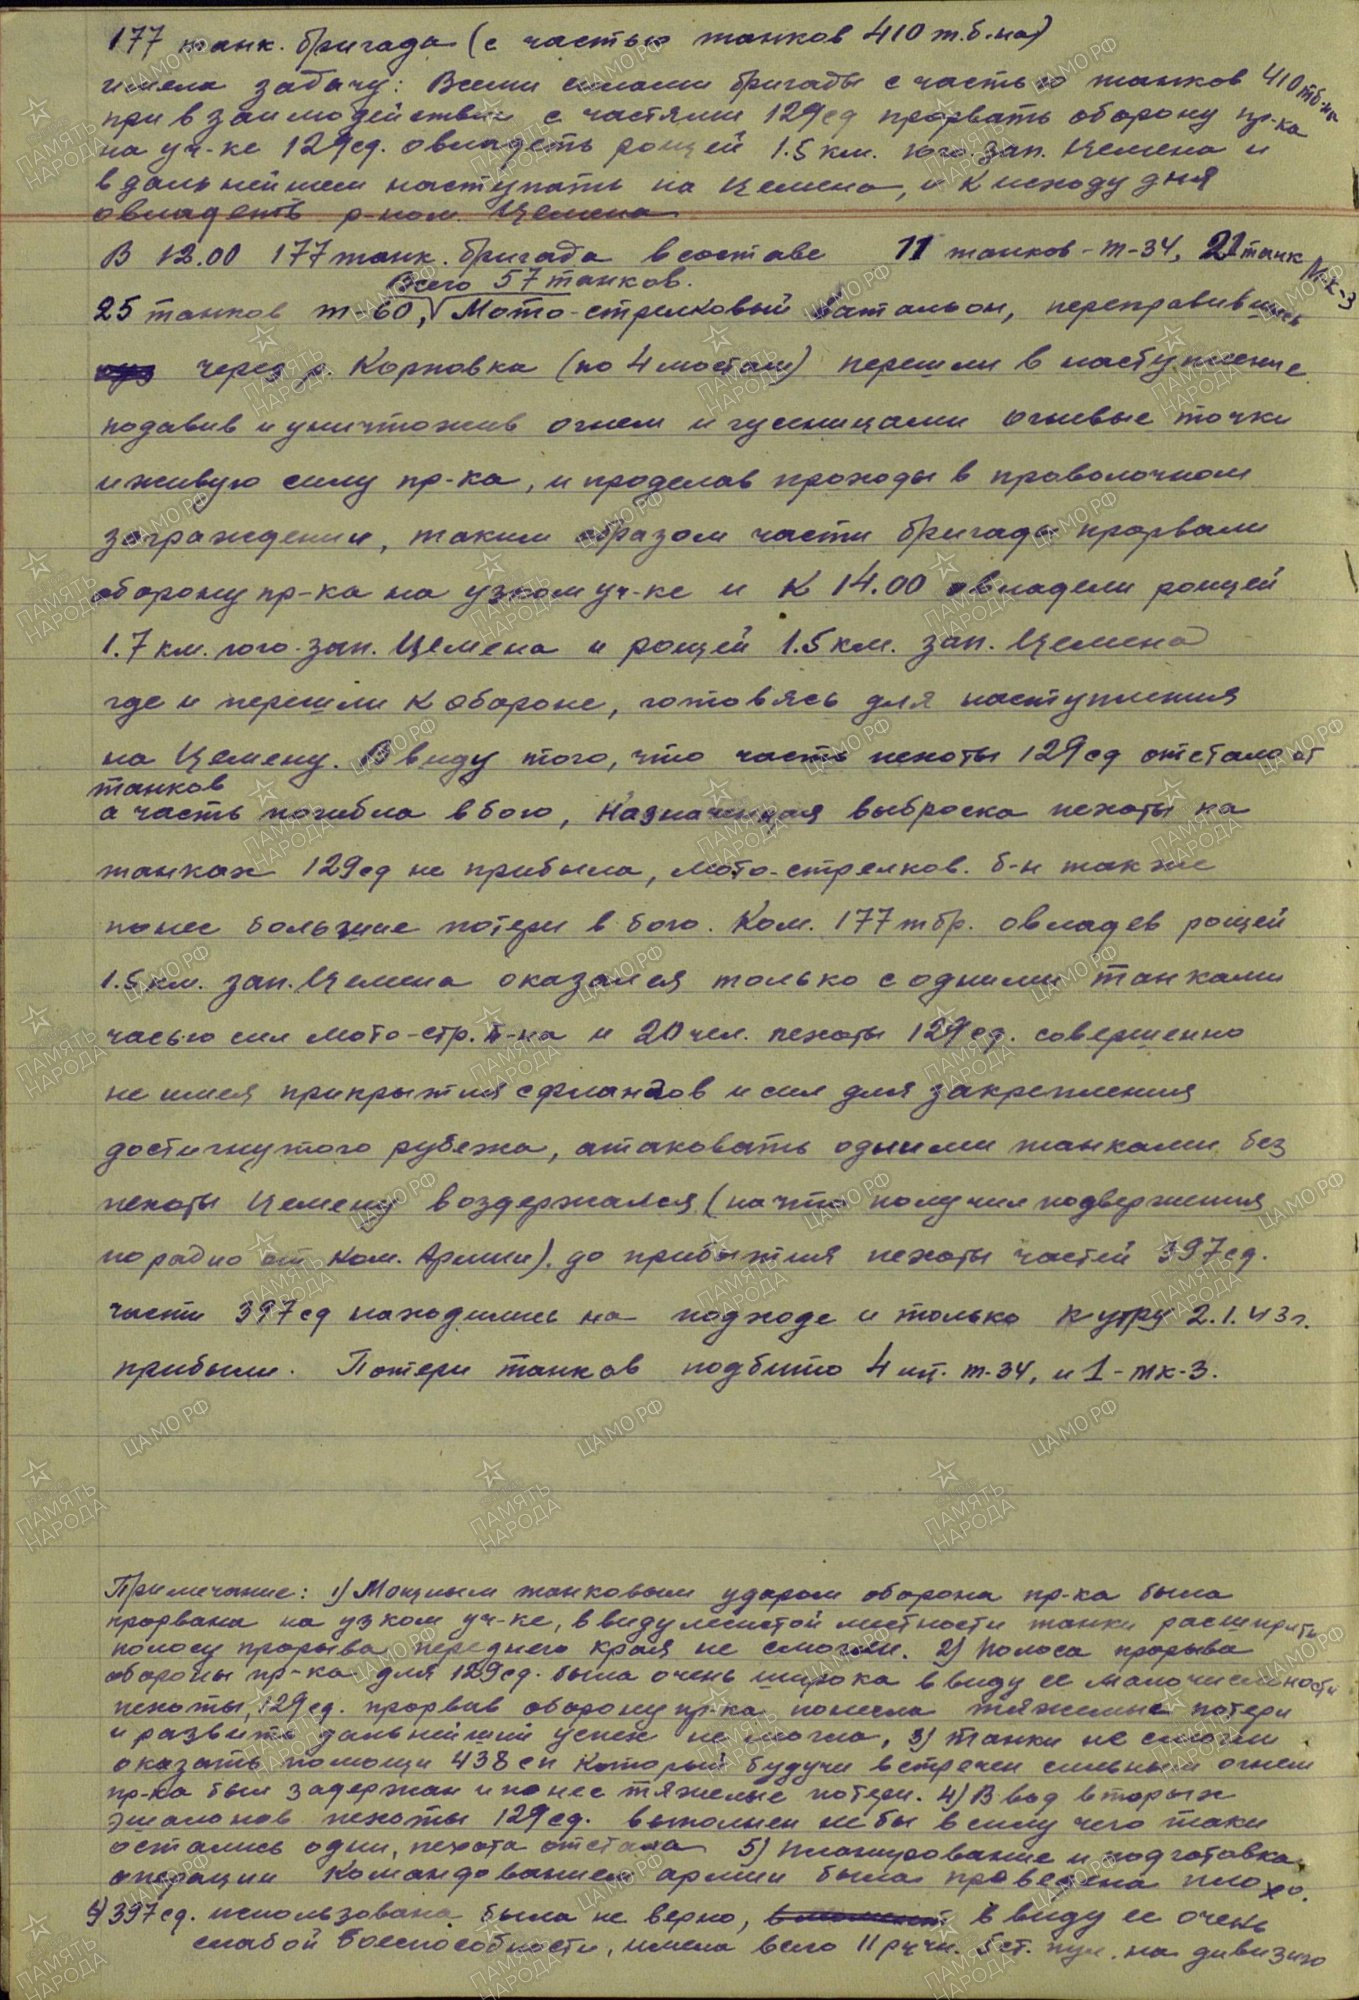 177 танк. бригада (с частью танков 410 т.б-на)
имела задачу: Всеми силами бригады с частью танков 410 тб-на
при взаимодействии с частями 129 сд прорвать оборону пр-ка
на уч-ке 129 сд. овладеть рощей 1.5 км. юго-зап. Цемена и
в дальнейшем наступать на Цемена, и к исходу дня
овладеть р-ном Цемена
В 12.00 177 танк. бригада в составе 11 танков-Т-34, 21 танк МК-3
Всего 57 танков.
25 танков Т-60, Мото-стрелковый батальон, переправившись
через р. Корповка (по 4 мостам) перешли в наступление
подавив и уничтожив огнем и гусеницами огневые точки
и живую силу пр-ка, и проделав проходы в проволочном
заграждении, таким образом части бригады прорвали
оборону пр-ка на узком уч-ке и к 14.00 овладели рощей
1.7 км. юго-зап. Цемена и рощей 1.5 км. зап. Цемена
где и перешли к обороне, готовясь для наступления
на Цемену. Ввиду того, что часть пехоты 129 сд отстала от
танков
а часть погибла в бою, Назначенная выброска пехоты на
танках 129 сд не прибыла, мото-стрелков. б-н также
понес большие потери в бою. Ком. 177 тбр. овладев рощей
1.5 км. зап. Цемена оказался только с одними танками
частью сил мото-стр. б-на и 20 чел. пехоты 129 сд. совершенно
не имея прикрытия с флангов и сил для закрепления
достигнутого рубежа, атаковать одними танками без
пехоты Цемену воздержался (на что получил подвержения
по радио от Ком. Армии). до прибытия пехоты частей 397 сд.
части 397 сд находились на подходе и только к утру 2.1.43 г.
прибыли. Потери танков подбито 4 шт. Т-34, и 1-МК-3.
Примечание: 1) Мощным танковым ударом оборона пр-ка была
прорвана на узком уч-ке, ввиду лесистой местности танки расширить
полосу прорыва переднего края не смогли. 2) Полоса прорыва
обороны пр-ка для 129 сд. была очень широка ввиду ее малочисленности
пехоты, 129 сд. прорвав оборону пр-ка понесла тяжелые потери
и развить дальнейший успех не могла, 3) Танки не смогли
оказать помощи 438 сп который будучи встречен сильным огнем
пр-ка был задержан и понес тяжелые потери. 4) Ввод вторых
эшалонов пехоты 129 сд. выполнен не бы в силу чего танки
остались одни, пехота отстала 5) Планирование и подготовка
операции командованием армии была проведена плохо.
6) 397 сд. использована была не верно, ввиду ее очень
слабой боеспособности, имела всего 11 ручн. 5 ст. пул. на дивизию
ЦАМО РФ
ПАМЯТЬ НАРОДА